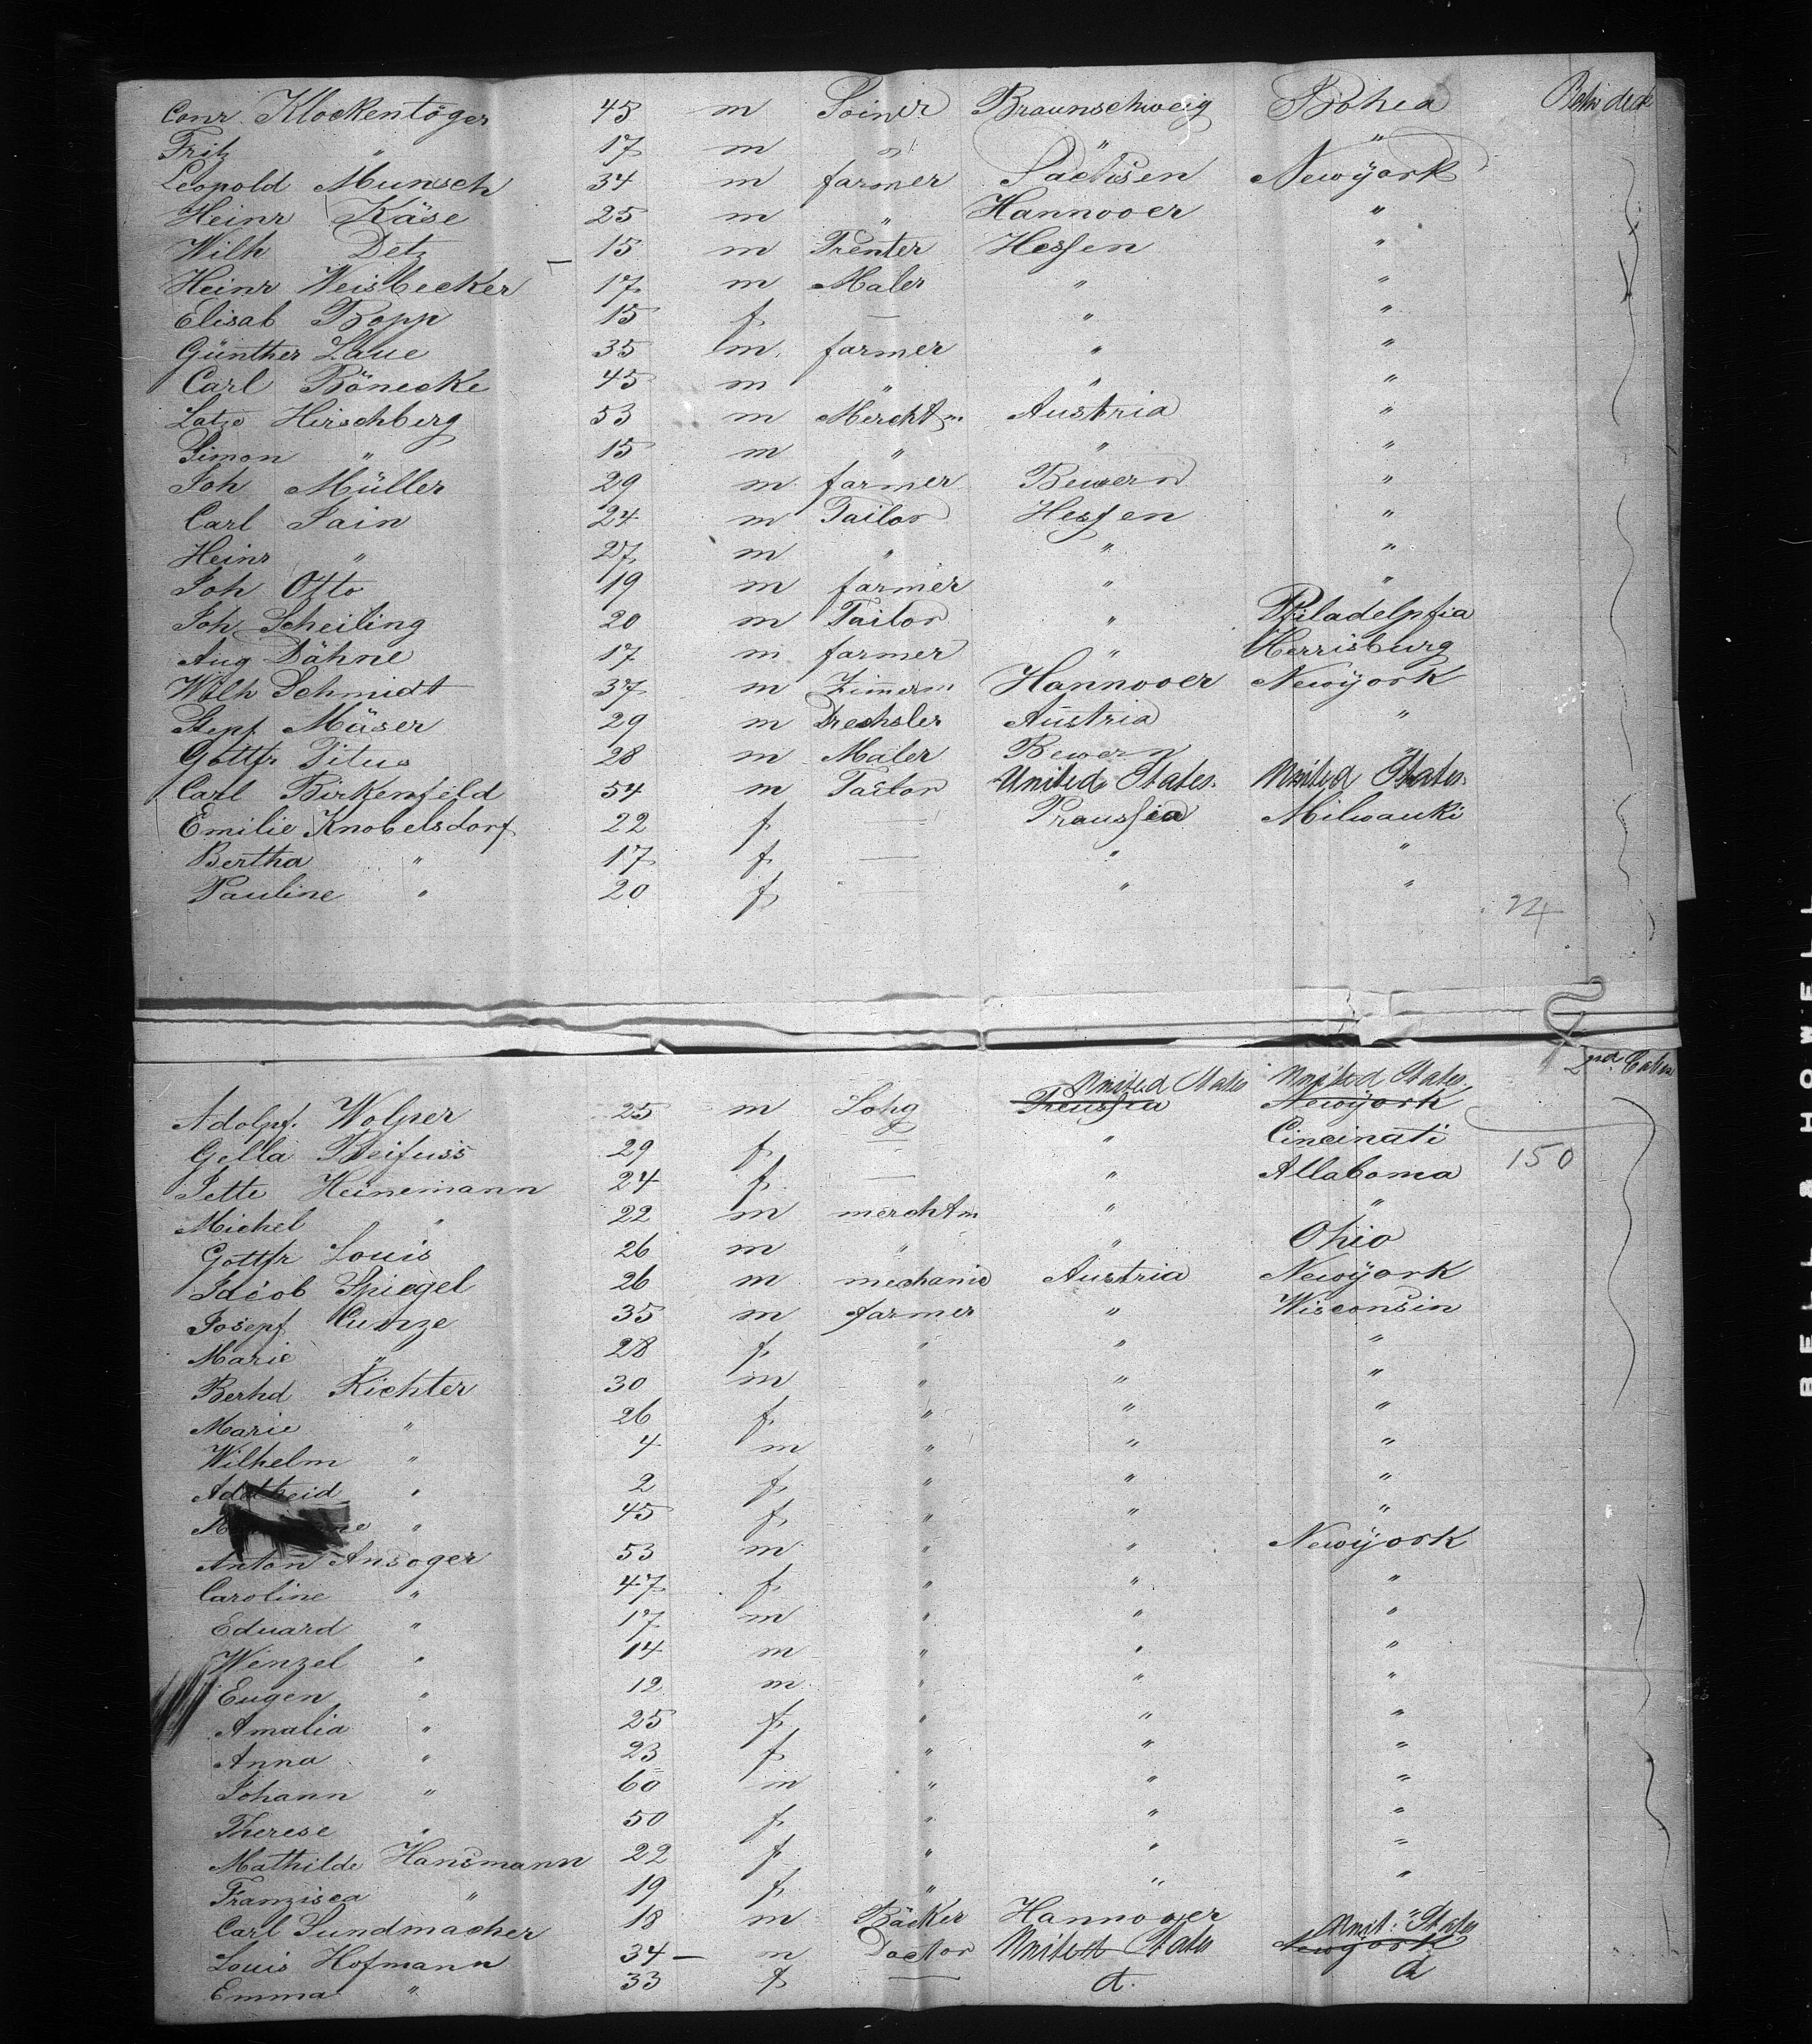 Conr. Klockentöger 45 m Soiner Braunschweig Bohea Betw deck
Fritz " 17 m " " "
Leopold Munsch 34 m farmer Sachsen Newÿork
Heinr Käse 25 m " Hannover "
Wilh Detz 15 m Trenter Hessen "
Heinr Weisbecker 17 m Maler " "
Elisab Bopp 15 f — " "
Günther Laue 35 m farmer " "
Carl Bönecke 45 m " " "
Latzo Hirschberg 53 m Merchtm Austria "
Simon " 15 m " " "
Joh Müller 29 m farmer Bewern "
Carl Sain 24 m Tailor Hessen "
Heinr " 27 m " " "
Joh Otto 19 m farmer " "
Joh Scheiling 20 m Tailor " Philadelpfia
Aug Dähne 17 m farmer " Herrisburg
Wilh Schmidt 37 m Zimmerm Hannover Newÿork
Stepf Mäser 29 m Drechsler Austria "
Gottfr Titus 28 m Maler Bewern "
Carl Birkenfeld 54 m Tailor United States. United States.
Emilie Knobelsdorf 22 f — Praussia Milwauki
Bertha " 17 f — " "
Pauline " 20 f — " "
24
2nd Cabin
United States United States
Adolpf. Wolper 25 m Lohg Preussia Newÿork
Gella Beifuss 29 f — " Cincinati
Jette Heinemann 24 f — " Allaboma 150
Michel " 22 m merchtm " "
Gottfr Louis 26 m " " Ohio
Jacob Spiegel 26 m mechanic Austria Newÿork
Josepf Cunze 35 m farmer " Wisconsin
Marie " 28 f " " "
Berhd Richter 30 m " " "
Marie " 26 f " " "
Wilhelm " 4 m " " "
Adelheid " 2 f " " "
" 45 f " " "
Anton Ansoger 53 m " " Newÿork
Caroline " 47 f " " "
Eduard " 17 m " " "
Wenzel " 14 m " " "
Eugen " 12 m " " "
Amalia " 25 f " " "
Anna " 23 f " " "
Johann " 60 m " " "
Therese " 50 f " " "
Mathilde Hansmann 22 f " " "
Franzisca " 19 f " " "
Carl Sundmacher 18 m Bäcker Hannover "
Unit. States
Louis Hofmann 34 — m Doctor United States Newÿork
Emma " 33 f — d. d